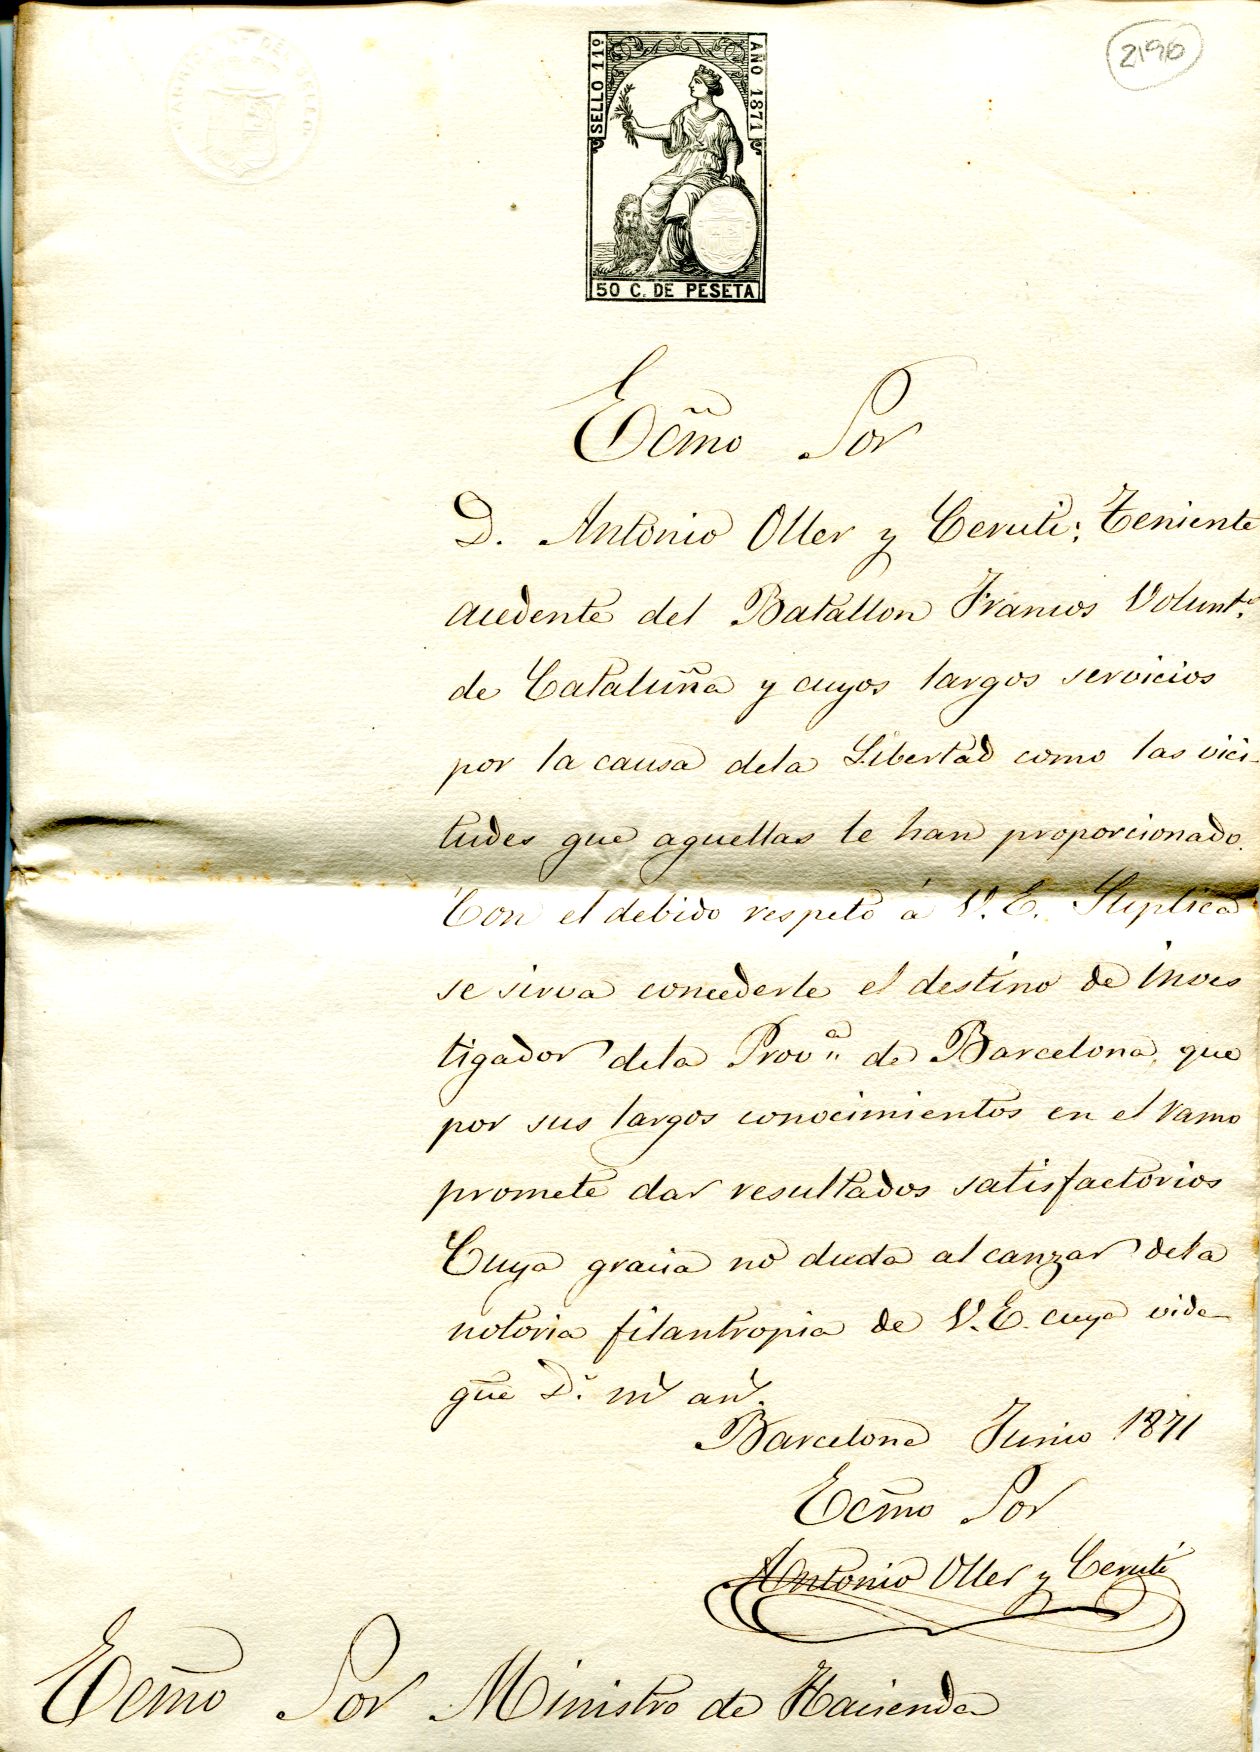 2196
SELLO 11º
AÑO 1871
50 C. DE PESETA
Ecm̃o Sor
D. Antonio Oller y Ceruti; Teniente
acedente del Batallon Francos Volunt.ˢ
de Cataluña y cuyos largos servicios
por la causa dela Libertad como las vici-
tudes que aquellas le han proporcionado.
Con el debido respeto á V. E. Suplica
se sirva concederle el destino de inves
tigador dela Prov.ª de Barcelona, que
por sus largos conocimientos en el ramo
promete dar resultados satisfactorios
Cuya gracia no duda alcanzar dela
notoria filantropia de V. E. cuya vida
gũe D.ˢ mˢ anˢ.
Barcelona Junio 1871
Ecm̃o Sor
Antonio Oller y Ceruti
Ecm̃o Sor Ministro de Hacienda